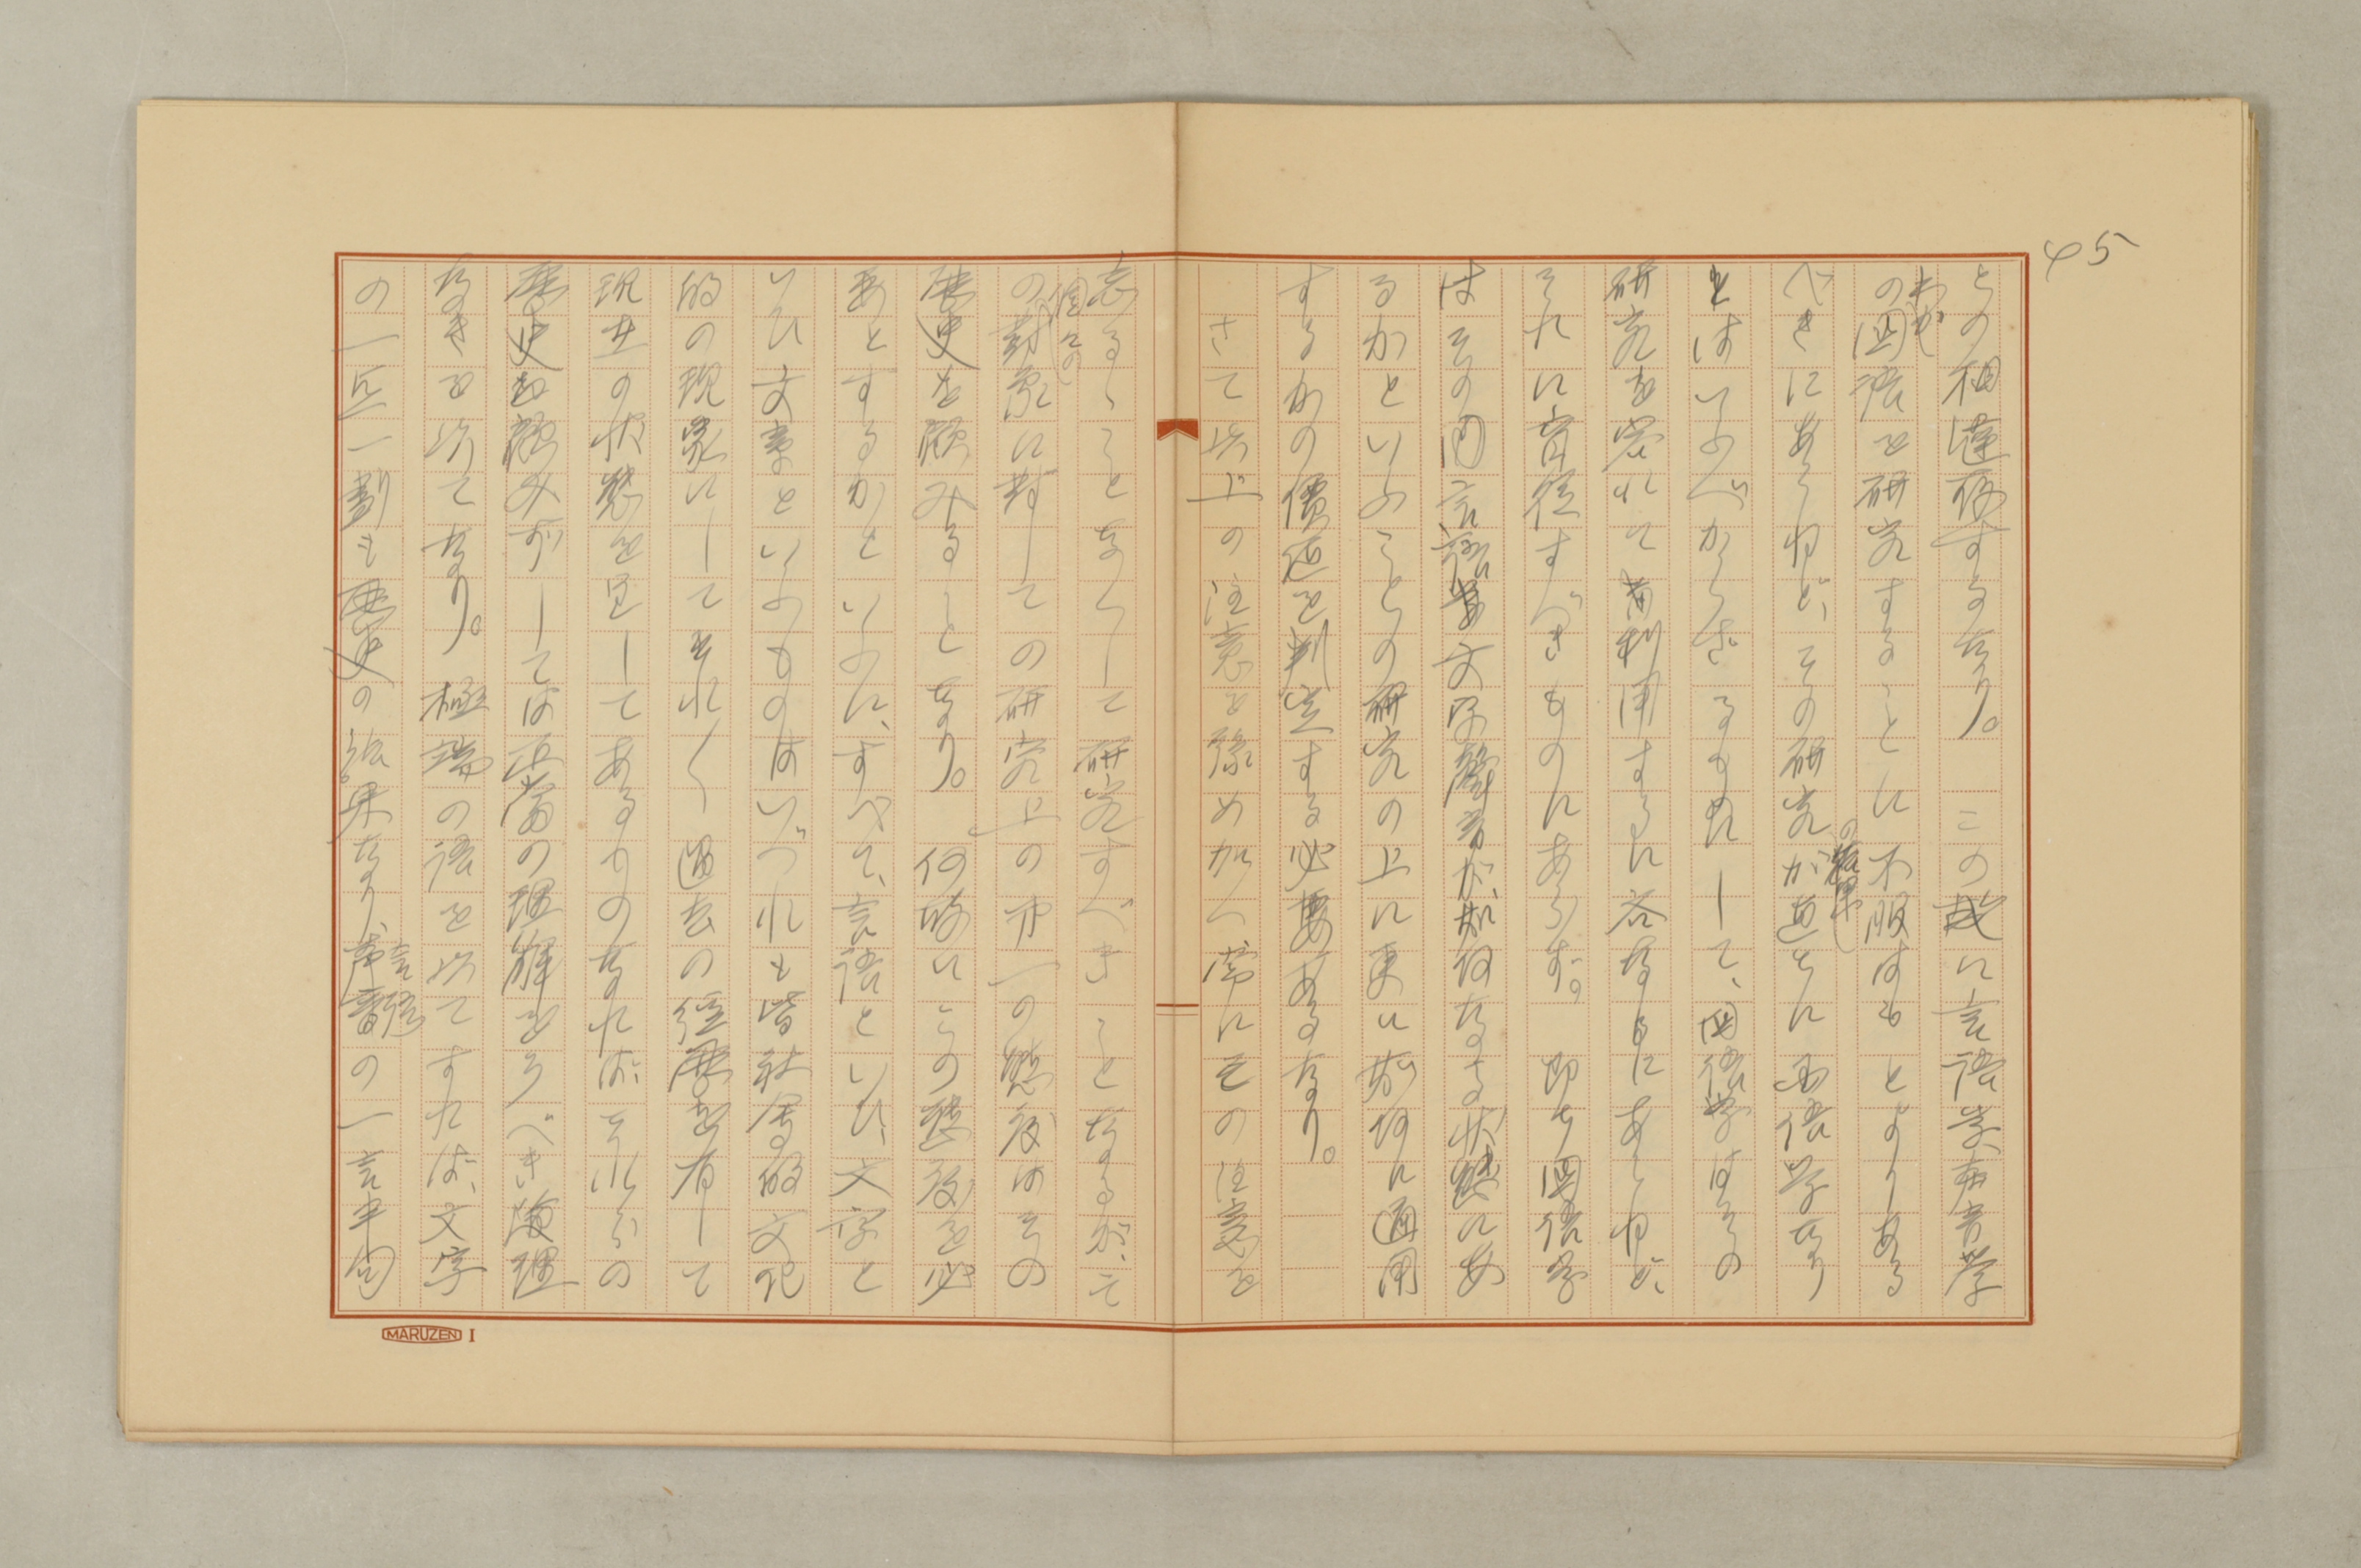 45
との相違存するなり。この故に言語学声音学
わが
の国語を研究することに不服はもとよりある
べきにあらねど、その研究が直ちに国語学なり
の結果
とはいふべからざるものにして、国語学はその
研究を容れて利用するに吝なるにあらねど、
それに盲従すべきものにあらず。即ち国語学
はその国言語文字声音が如何なる状態にあ
るかといふことの研究の上に更に如何に通用
するかの価値を判定する必要あるなり。
さて以上の注意を予め加へ常にその注意を
忘るゝことなくして研究すべきことなるが、そ
個々の
の対象に対しての研究上の第一の態度はその
歴史を顧みることなり。何故にこの態度を必
要とするかといふに、すべて、言語といひ、文字と
いひ文章といふものはいづれも皆社会的文化
的の現象にしてそれ〳〵過去の経歴を有して
現在の状態を呈してあるものなれば、それらの
歴史を顧みずしては正当の理解をうべき道理
なきを以てなり。極端の語を以てすれば、文字
の一点一劃も歴史の結果なり、声音の一言半句
言語
MARUZEN I